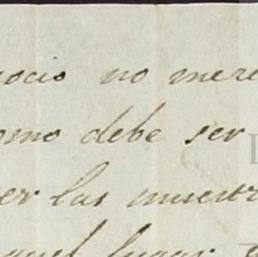 ocio no mere
omo debe ser
er las muestr
quel lugar